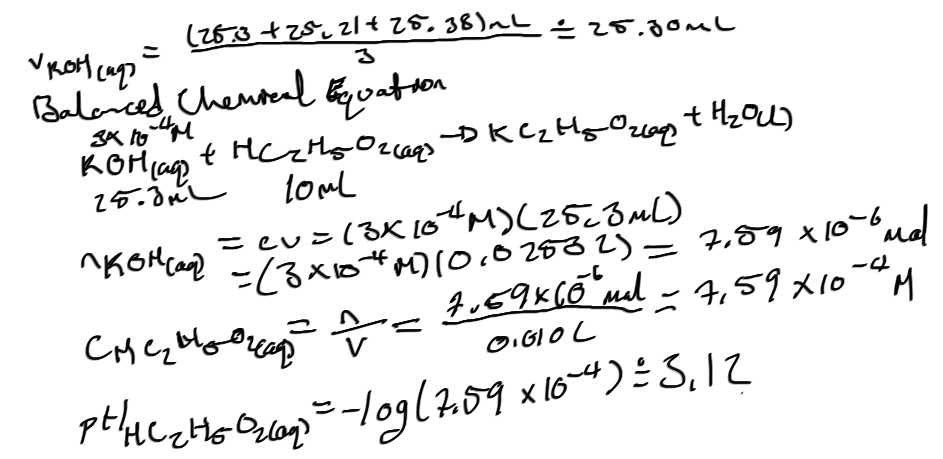 V KOH(aq) = (25.3 + 25.21 + 25.38)mL / 3 ≐ 25.30mL
Balanced Chemical Equation
3×10⁻⁴M
KOH(aq) + HC₂H₅O₂(aq) → KC₂H₅O₂(aq) + H₂O(l)
25.3mL 10mL
nKOH(aq) = cv = (3×10⁻⁴M)(25.3mL)
= (3×10⁻⁴M)(0.0253L) = 7.59×10⁻⁶mol
CHC₂H₅O₂(aq) = n/V = 7.59×10⁻⁶mol / 0.010L = 7.59×10⁻⁴M
pH HC₂H₅O₂(aq) = -log(7.59×10⁻⁴) ≐ 3.12